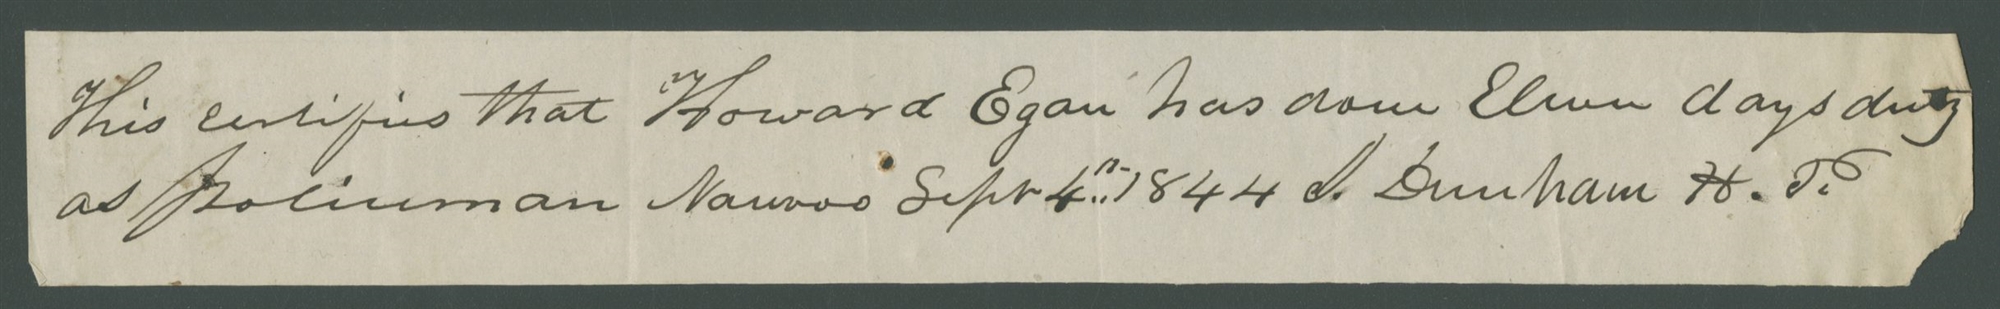 This certifies that Howard Egan has done Eleven days duty
as Policeman Nauvoo Sept 4th 1844 J. Dunham H. P.